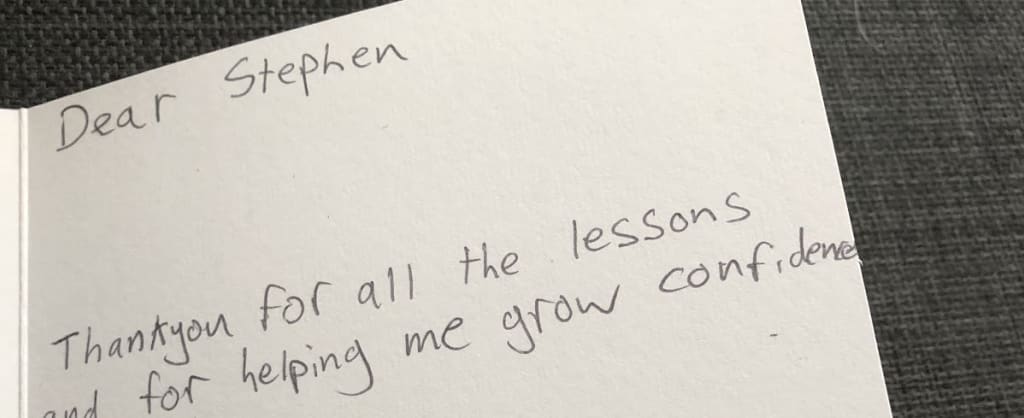 Dear Stephen
Thankyou for all the lessons
and for helping me grow confidence